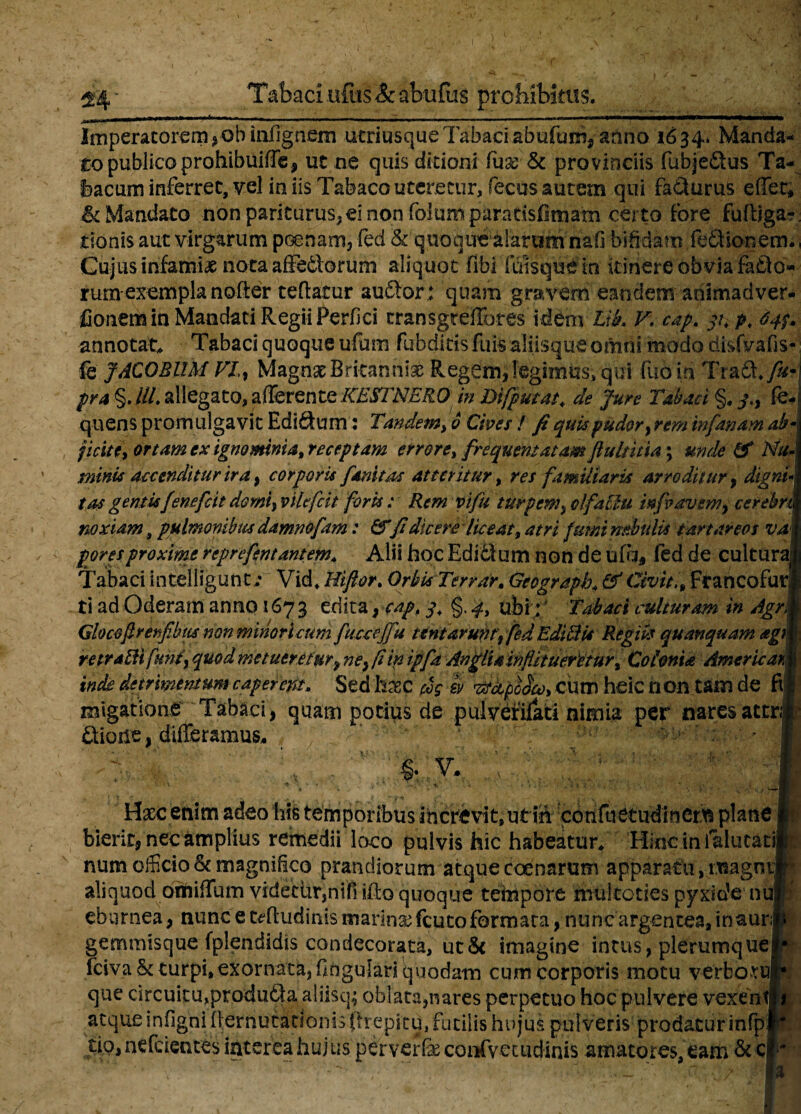 24 Tabaci usus & abusus prohibitus.
Imperatorem, ob insignem utriusque Tabaci abusum, anno 1634. Manda-
to publico prohibuisse, ut ne quis ditioni suæ & provinciis subjectus Ta-
bacum inferret, vel in iis Tabaco uteretur, secus autem qui facturus esset,
& Mandato non pariturus, ei non solum paratissimam certo fore fustiga-
tionis aut virgarum pœnam, sed & quoque alarum nasi bifidam sectionem.
Cujus infamiæ nota affectorum aliquot sibi suisque in itinere obvia facto-
rum exempla noster testatur auctor: quam gravem eandem animadver-
sionem in Mandati Regii Persici transgressores idem Lib. V. cap. 31. p. 645.
annotat. Tabaci quoque usum subditis suis aliisque omni modo disfvasis-
se JACOBUM VI., Magnæ Britanniæ Regem, legimus, qui suo in Tract. su-
pra §. III. allegato, asserente KESTNERO in Disputat. de Jure Tabaci §. 3., se-
quens promulgavit Edictum: Tandem, o Cives! si quis pudor, rem insanam ab-
jicite, ortam ex ignominia, receptam errore, frequentatam stultitia; unde & Nu-
minis accenditur ira, corporis sanitas atteritur, res familiaris arroditur, digni-
tas gentis senescit domi, vilescit foris: Rem visu turpem, olfactu insvavem, cerebro
noxiam, pulmonibus damnosam: & si dicere liceat, atri fumi nebulis tartareos va
pores proxime repræsentantem. Alii hoc Edictum non de usu, sed de cultura
Tabaci intelligunt: Vid. Histor. Orbis Terrar. Geograph. & Civit., Francofur
ti ad Oderam anno 1673 edita, cap. 3. §. 4, ubi: Tabaci culturam in Agr.
Glocestrensibus non minori cum successu tentarunt, sed Edictis Regiis quanquam ægr
retracti sunt, quod metueretur, ne, si in ipsa Anglia institueretur, Colonia American
inde detrimentum caperent. Sed hæc ὡς ἐν παρόδῳ, cum heic non tam de fu
migatione Tabaci, quam potius de pulverisati nimia per nares attra
ctione, disseramus.
§. V.
Hæc enim adeo his temporibus increvit, ut in consuetudinem plane
bierit, nec amplius remedii loco pulvis hic habeatur. Hinc in salutati
num officio & magnifico prandiorum atque cœnarum apparatu, magni
aliquod omissum videtur, nisi isto quoque tempore multoties pyxide nu
eburnea, nunc e testudinis marinæ scuto formata, nunc argentea, in aur
gemmisque splendidis condecorata, ut & imagine intus, plerumque
sciva & turpi, exornata, singulari quodam cum corporis motu verboru
que circuitu, producta aliisq; oblata, nares perpetuo hoc pulvere vexent
atque insigni sternutationis strepitu, futilis hujus pulveris prodatur insp
tio, nescientes interea hujus perversæ consvetudinis amatores, eam & c